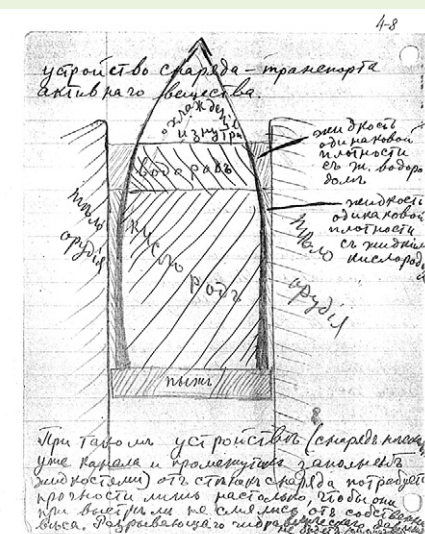 4-8
устройство снаряда-транспорта
активнаго вещества.
охлажденіе
изнутри
водородъ
кисло
родъ
тѣло
орудія
пыжъ
жидкость
одинаковой
плотности
съ ж. водоро
домъ
жидкость
одинаковой
плотности
съ жидкимъ
кислородо
тѣло
орудія
При такомъ устройствѣ (снарядъ
уже канала и промежутокъ заполненъ
жидкостями) отъ стѣнокъ снаряда потребует
прочности лишь настолько, чтобы они
при выстрѣлѣ не смялись отъ собственнаго
вѣса. Разрывающаго гидравлическаго